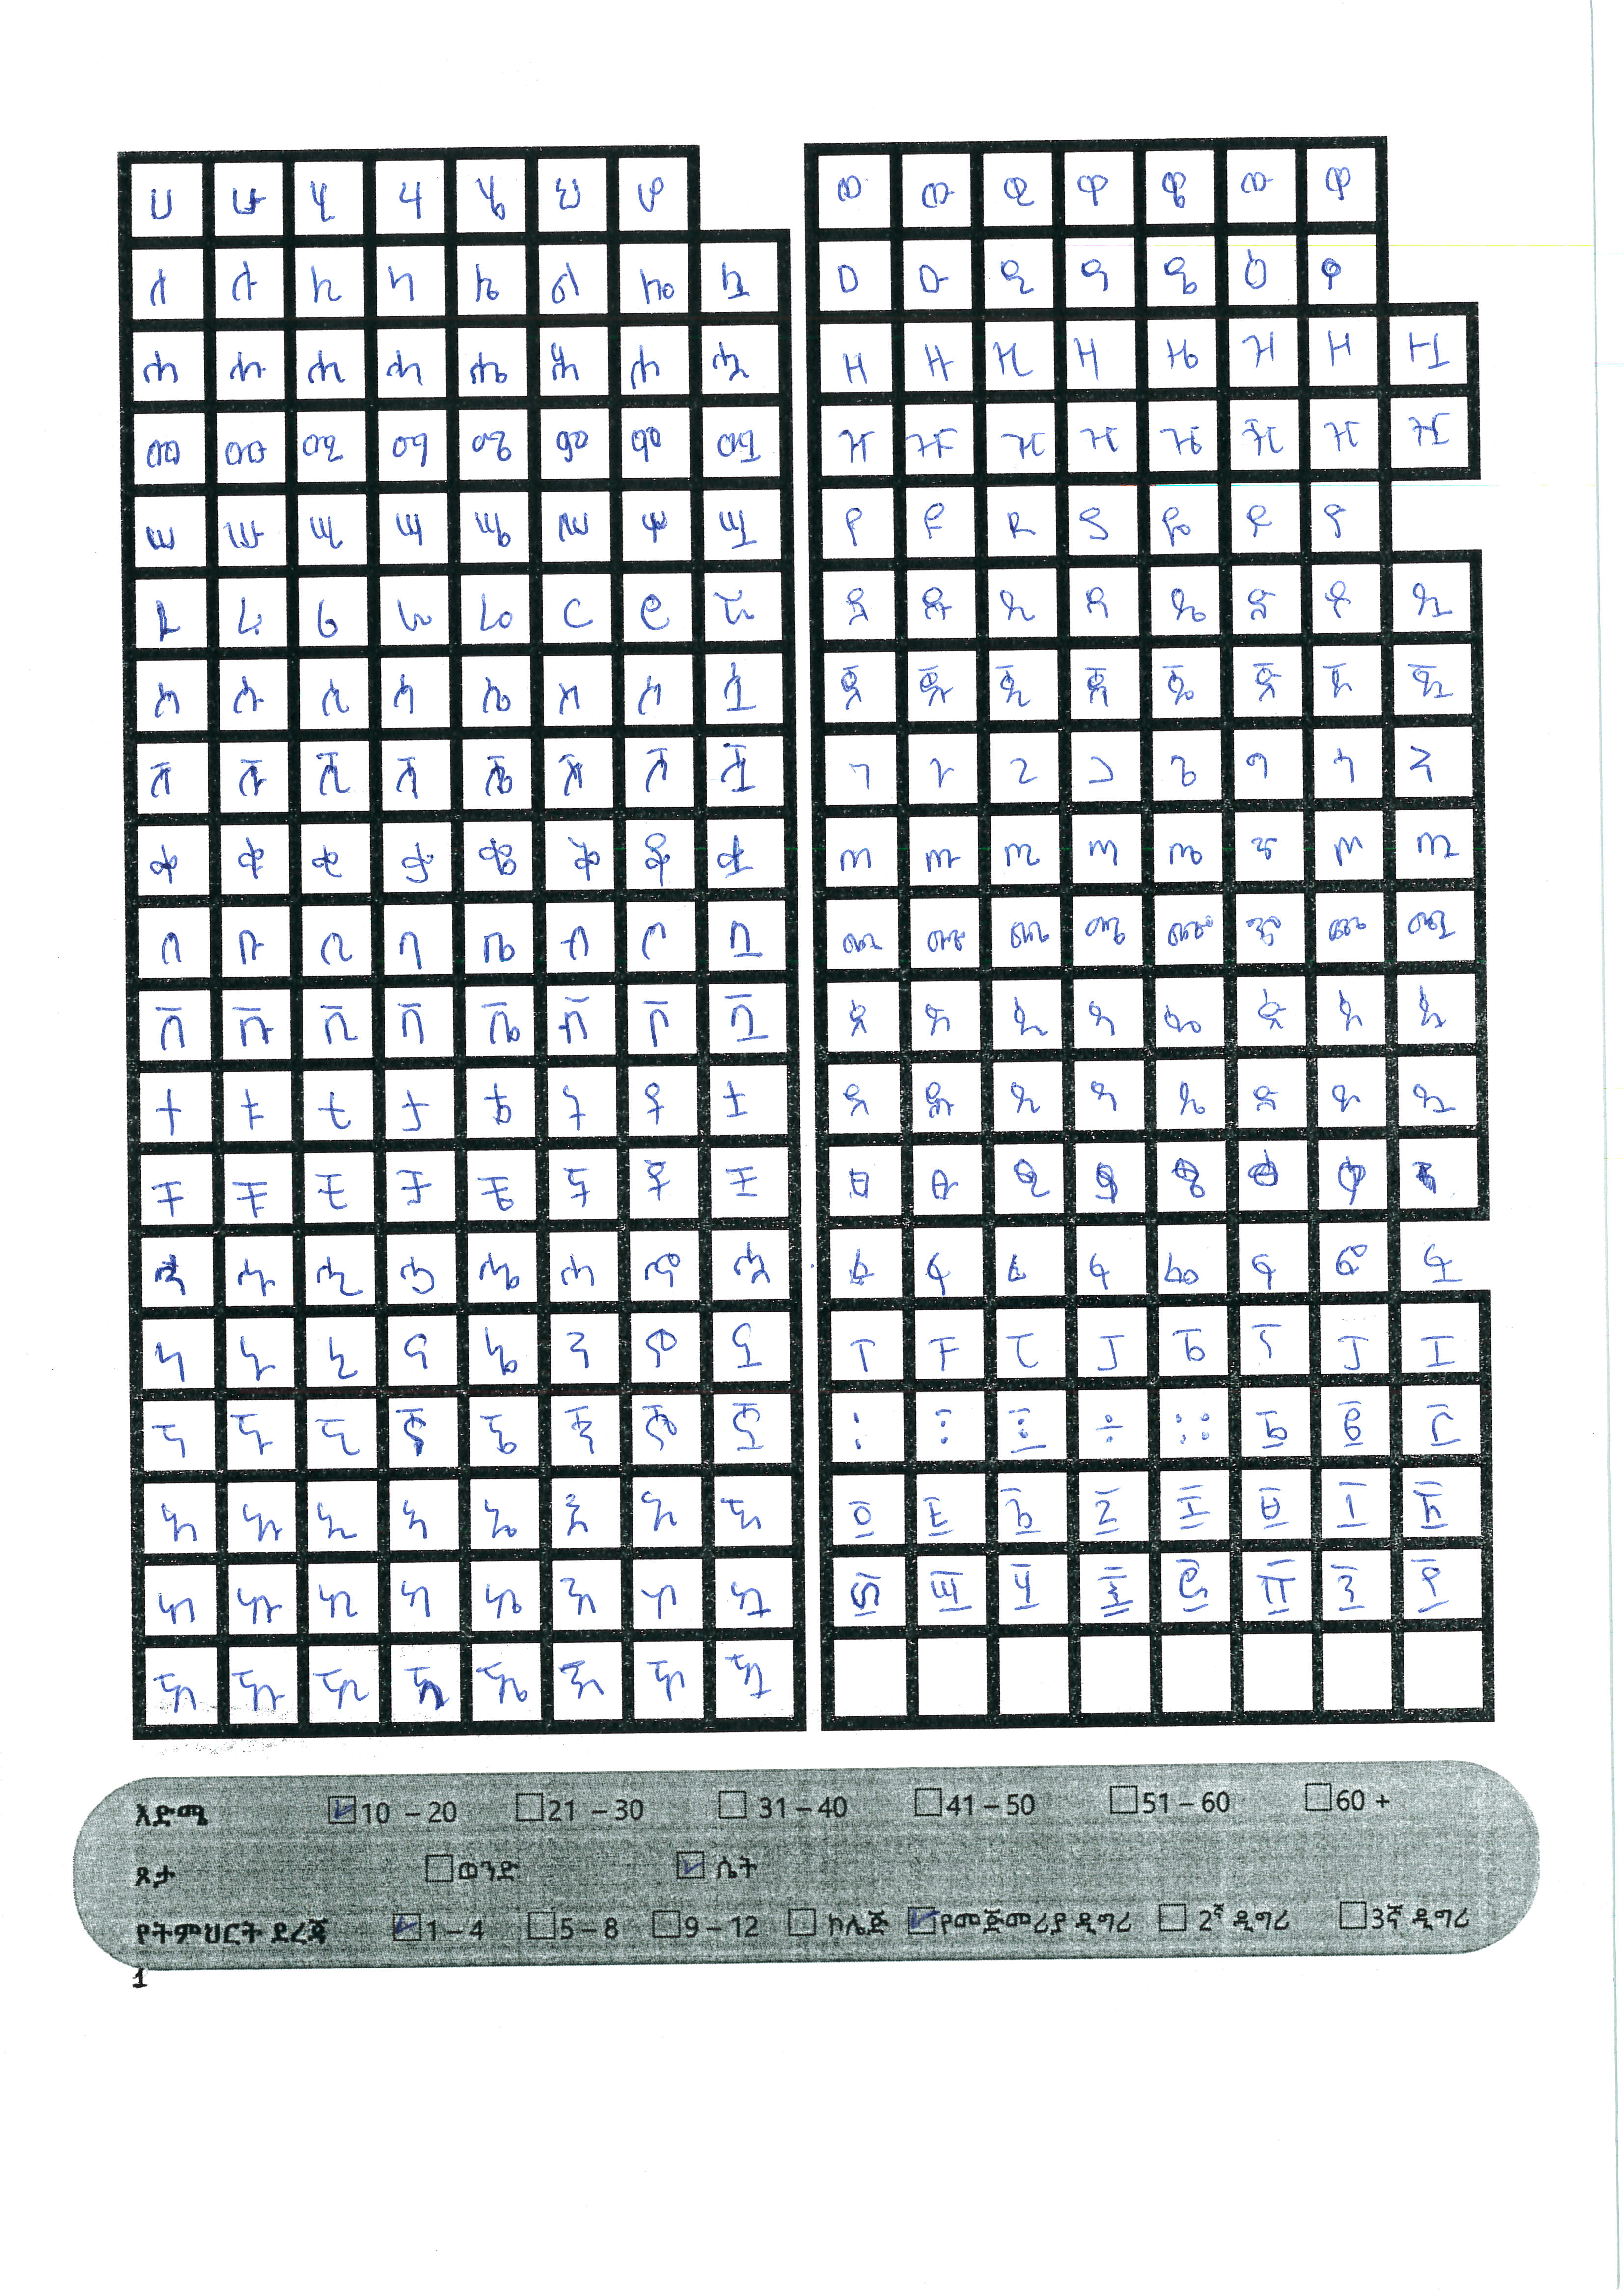 ሀ ሁ ሂ ሃ ሄ ህ ሆ
ለ ሉ ሊ ላ ሌ ል ሎ ሏ
ሐ ሑ ሒ ሓ ሔ ሕ ሖ ሗ
መ ሙ ሚ ማ ሜ ም ሞ ሟ
ሠ ሡ ሢ ሣ ሤ ሥ ሦ ሧ
ረ ሩ ሪ ራ ሬ ር ሮ ሯ
ሰ ሱ ሲ ሳ ሴ ስ ሶ ሷ
ሸ ሹ ሺ ሻ ሼ ሽ ሾ ሿ
ቀ ቁ ቂ ቃ ቄ ቅ ቆ ቋ
በ ቡ ቢ ባ ቤ ብ ቦ ቧ
ቨ ቩ ቪ ቫ ቬ ቭ ቮ ቯ
ተ ቱ ቲ ታ ቴ ት ቶ ቷ
ቸ ቹ ቺ ቻ ቼ ች ቾ ቿ
ኀ ኁ ኂ ኃ ኄ ኅ ኆ ኋ
ነ ኑ ኒ ና ኔ ን ኖ ኗ
ኘ ኙ ኚ ኛ ኜ ኝ ኞ ኟ
አ ኡ ኢ ኣ ኤ እ ኦ ኧ
ከ ኩ ኪ ካ ኬ ክ ኮ ኳ
ኸ ኹ ኺ ኻ ኼ ኽ ኾ ዃ
ወ ዉ ዊ ዋ ዌ ው ዎ
ዐ ዑ ዒ ዓ ዔ ዕ ዖ
ዘ ዙ ዚ ዛ ዜ ዝ ዞ ዟ
ዠ ዡ ዢ ዣ ዤ ዥ ዦ ዧ
የ ዩ ዪ ያ ዬ ይ ዮ
ደ ዱ ዲ ዳ ዴ ድ ዶ ዷ
ጀ ጁ ጂ ጃ ጄ ጅ ጆ ጇ
ገ ጉ ጊ ጋ ጌ ግ ጎ ጓ
ጠ ጡ ጢ ጣ ጤ ጥ ጦ ጧ
ጨ ጩ ጪ ጫ ጬ ጭ ጮ ጯ
ጰ ጱ ጲ ጳ ጴ ጵ ጶ ጷ
ጸ ጹ ጺ ጻ ጼ ጽ ጾ ጿ
ፀ ፁ ፂ ፃ ፄ ፅ ፆ
ፈ ፉ ፊ ፋ ፌ ፍ ፎ ፏ
ፐ ፑ ፒ ፓ ፔ ፕ ፖ ፗ
፡ ፧ ፩ ÷ ፨ ፩ ፪ ፫
፬ ፭ ፮ ፯ ፰ ፱ ፲ ፳
፴ ፵ ፶ ፷ ፸ ፹ ፺ ፻
እድሜ 10 – 20 21 – 30 31 – 40 41 – 50 51 – 60 60 +
ጾታ ወንድ ሴት
የትምህርት ደረጃ 1 – 4 5 – 8 9 – 12 ኮሌጅ የመጀመሪያ ዲግሪ 2ኛ ዲግሪ 3ኛ ዲግሪ
1